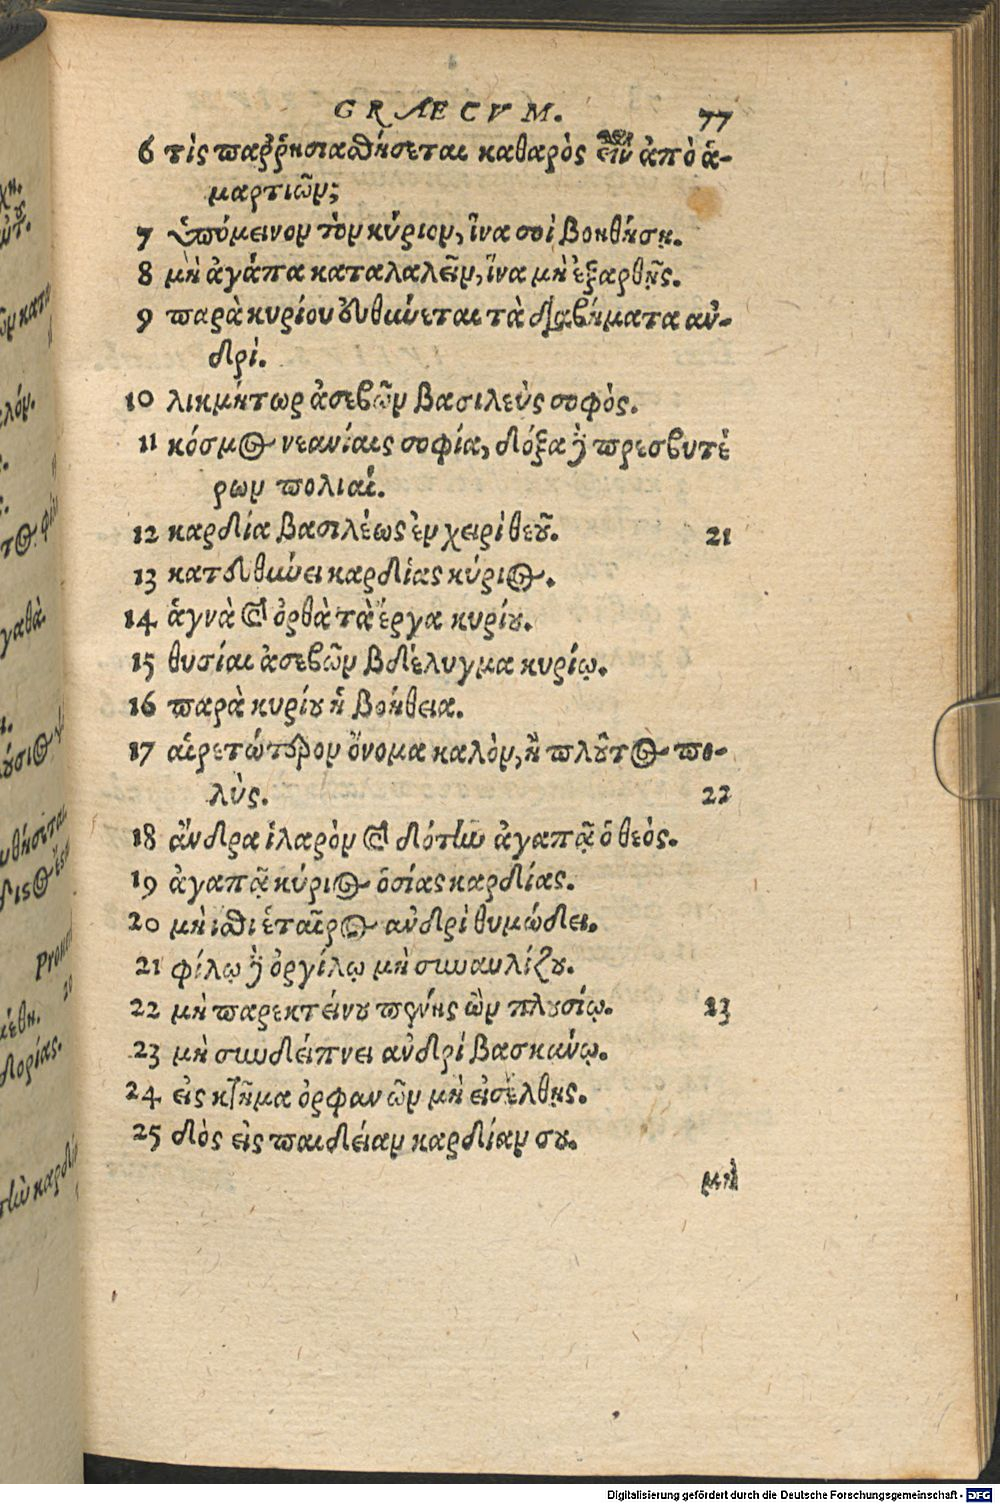 GRAECVM. 77
6 τὶς παρρησιασθήσεται καθαρὸς εἶναι ἀπὸ ἁ-
μαρτιῶν;
7 ὑπόμεινον τὸν κύριον, ἵνα σοὶ βοηθήσῃ.
8 μὴ ἀγάπα καταλαλεῖν, ἵνα μὴ ἐξαρθῇς.
9 παρὰ κυρίου εὐθύνεται τὰ διαβήματα ἀν-
δρί.
10 λικμήτωρ ἀσεβῶν βασιλεὺς σοφὸς.
11 κόσμος νεανίαις σοφία, δόξα δὲ πρεσβυτέ
ρων πολιαί.
12 καρδία βασιλέως ἐν χειρὶ θεοῦ. 21
13 κατευθύνει καρδίας κύριος.
14 ἁγνὰ καὶ ὀρθὰ τὰ ἔργα κυρίου.
15 θυσίαι ἀσεβῶν βδέλυγμα κυρίῳ.
16 παρὰ κυρίου ἡ βοήθεια.
17 αἱρετώτερον ὄνομα καλὸν, ἢ πλοῦτος πο-
λὺς. 22
18 ἄνδρα ἱλαρὸν καὶ δότην ἀγαπᾷ ὁ θεὸς.
19 ἀγαπᾷ κύριος ὁσίας καρδίας.
20 μὴ ἴσθι ἑταῖρος ἀνδρὶ θυμώδει.
21 φίλῳ δὲ ὀργίλῳ μὴ συναυλίζου.
22 μὴ παρεκτείνου πένης ὢν πλουσίῳ. 23
23 μὴ συνδείπνει ἀνδρὶ βασκάνῳ.
24 εἰς κτῆμα ὀρφανῶν μὴ εἰσέλθῃς.
25 δὸς εἰς παιδείαν καρδίαν σου.
μὴ
Digitalisierung gefördert durch die Deutsche Forschungsgemeinschaft - DFG